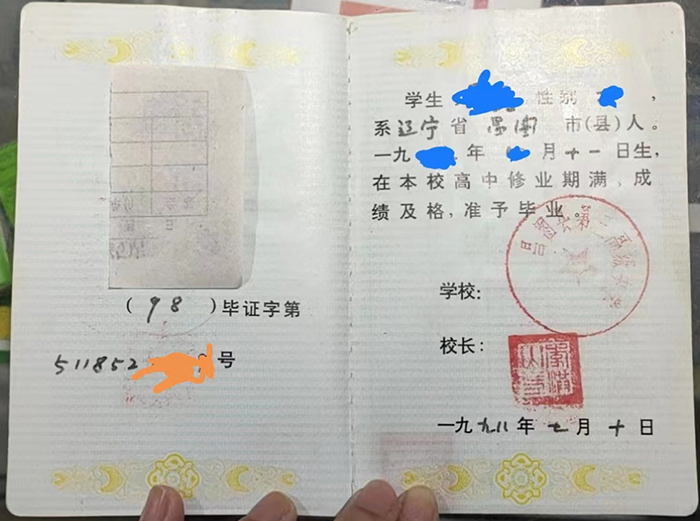 (98)毕证字第
511852
号
学生 性别 ,
系辽宁省昌图市(县)人。
一九 年 月十一日生,
在本校高中修业期满,成
绩及格,准予毕业。
学校:
校长:
一九九八年七月十日